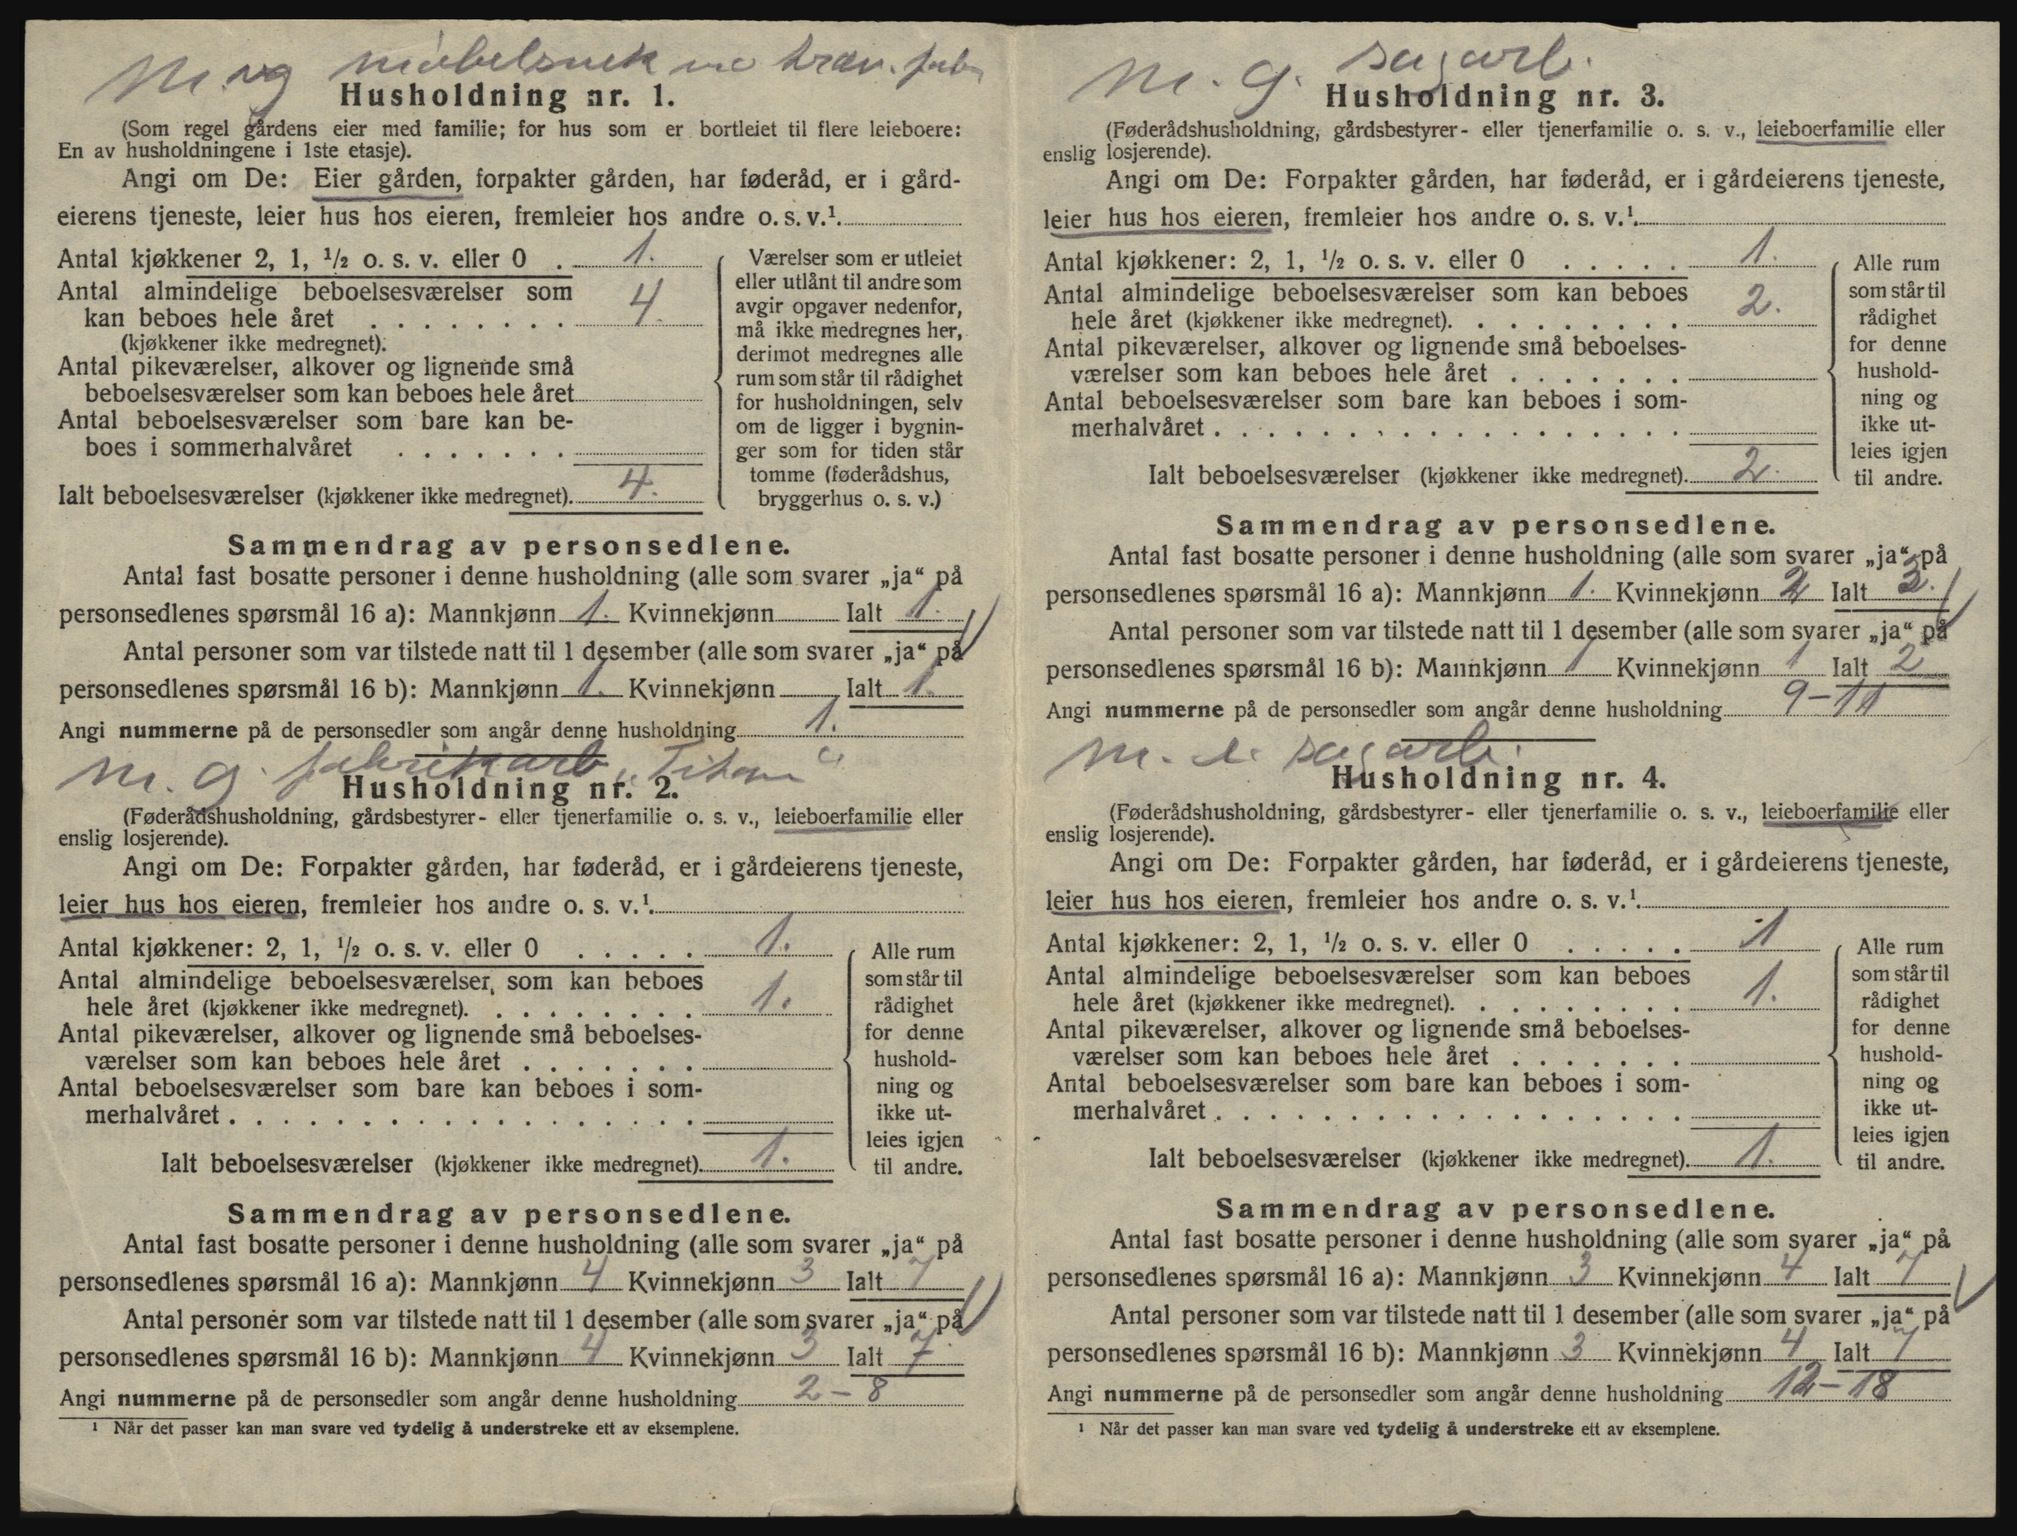 M. ug møbelsnek ve træv. fab
Husholdning nr. 1.
(Som regel gårdens eier med familie; for hus som er bortleiet til flere leieboere:
En av husholdningene i 1ste etasje).
Angi om De: Eier gården, forpakter gården, har føderåd, er i gård-
eierens tjeneste, leier hus hos eieren, fremleier hos andre o. s. v.¹.
Antal kjøkkener 2, 1, ½ o. s. v. eller 0 . 1.
Antal almindelige beboelsesværelser som
kan beboes hele året . . . . . . . . 4.
(kjøkkener ikke medregnet).
Antal pikeværelser, alkover og lignende små
beboelsesværelser som kan beboes hele året
Antal beboelsesværelser som bare kan be-
boes i sommerhalvåret . . . . . . .
Ialt beboelsesværelser (kjøkkener ikke medregnet). 4.
Værelser som er utleiet
eller utlånt til andre som
avgir opgaver nedenfor,
må ikke medregnes her,
derimot medregnes alle
rum som står til rådighet
for husholdningen, selv
om de ligger i bygnin-
ger som for tiden står
tomme (føderådshus,
bryggerhus o. s. v.)
Sammendrag av personsedlene.
Antal fast bosatte personer i denne husholdning (alle som svarer „ja“ på
personsedlenes spørsmål 16 a): Mannkjønn 1. Kvinnekjønn Ialt 1.
Antal personer som var tilstede natt til 1 desember (alle som svarer „ja“ på
personsedlenes spørsmål 16 b): Mannkjønn 1. Kvinnekjønn Ialt 1.
Angi nummerne på de personsedler som angår denne husholdning 1.
M. g. fabrikarb „Titan“
Husholdning nr. 2.
(Føderådshusholdning, gårdsbestyrer- eller tjenerfamilie o. s. v., leieboerfamilie eller
enslig losjerende).
Angi om De: Forpakter gården, har føderåd, er i gårdeierens tjeneste,
leier hus hos eieren, fremleier hos andre o. s. v.¹.
Antal kjøkkener: 2, 1, ½ o. s. v. eller 0 . . . . . 1.
Antal almindelige beboelsesværelser, som kan beboes
hele året (kjøkkener ikke medregnet). . . . . . . . . 1.
Antal pikeværelser, alkover og lignende små beboelses-
værelser som kan beboes hele året . . . . . . .
Antal beboelsesværelser som bare kan beboes i som-
merhalvåret . . . . . . . . . . . . . . . . . .
Ialt beboelsesværelser (kjøkkener ikke medregnet). 1.
Alle rum
som står til
rådighet
for denne
hushold-
ning og
ikke ut-
leies igjen
til andre.
Sammendrag av personsedlene.
Antal fast bosatte personer i denne husholdning (alle som svarer „ja“ på
personsedlenes spørsmål 16 a): Mannkjønn 4 Kvinnekjønn 3 Ialt 7
Antal personer som var tilstede natt til 1 desember (alle som svarer „ja“ på
personsedlenes spørsmål 16 b): Mannkjønn 4 Kvinnekjønn 3 Ialt 7.
Angi nummerne på de personsedler som angår denne husholdning 2 - 8
¹ Når det passer kan man svare ved tydelig å understreke ett av eksemplene.
M. g. sagarb.
Husholdning nr. 3.
(Føderådshusholdning, gårdsbestyrer- eller tjenerfamilie o. s. v., leieboerfamilie eller
enslig losjerende).
Angi om De: Forpakter gården, har føderåd, er i gårdeierens tjeneste,
leier hus hos eieren, fremleier hos andre o. s. v.¹.
Antal kjøkkener: 2, 1, ½ o. s. v. eller 0 . . . . . 1.
Antal almindelige beboelsesværelser som kan beboes
hele året (kjøkkener ikke medregnet). . . . . . . . . 2.
Antal pikeværelser, alkover og lignende små beboelses-
værelser som kan beboes hele året . . . . . . .
Antal beboelsesværelser som bare kan beboes i som-
merhalvåret . . . . . . . . . . . . . . . . . .
Ialt beboelsesværelser (kjøkkener ikke medregnet). 2.
Alle rum
som står til
rådighet
for denne
hushold-
ning og
ikke ut-
leies igjen
til andre.
Sammendrag av personsedlene.
Antal fast bosatte personer i denne husholdning (alle som svarer „ja“ på
personsedlenes spørsmål 16 a): Mannkjønn 1. Kvinnekjønn 2 Ialt 3.
Antal personer som var tilstede natt til 1 desember (alle som svarer „ja“ på
personsedlenes spørsmål 16 b): Mannkjønn 1 Kvinnekjønn 1 Ialt 2
Angi nummerne på de personsedler som angår denne husholdning 9-11
M. sagarb.
Husholdning nr. 4.
(Føderådshusholdning, gårdsbestyrer- eller tjenerfamilie o. s. v., leieboerfamilie eller
enslig losjerende).
Angi om De: Forpakter gården, har føderåd, er i gårdeierens tjeneste,
leier hus hos eieren, fremleier hos andre o. s. v.¹.
Antal kjøkkener: 2, 1, ½ o. s. v. eller 0 . . . . . 1
Antal almindelige beboelsesværelser som kan beboes
hele året (kjøkkener ikke medregnet). . . . . . . . . 1.
Antal pikeværelser, alkover og lignende små beboelses-
værelser som kan beboes hele året . . . . . . .
Antal beboelsesværelser som bare kan beboes i som-
merhalvåret . . . . . . . . . . . . . . . . . .
Ialt beboelsesværelser (kjøkkener ikke medregnet). 1.
Alle rum
som står til
rådighet
for denne
hushold-
ning og
ikke ut-
leies igjen
til andre.
Sammendrag av personsedlene.
Antal fast bosatte personer i denne husholdning (alle som svarer „ja“ på
personsedlenes spørsmål 16 a): Mannkjønn 3 Kvinnekjønn 4 Ialt 7
Antal personer som var tilstede natt til 1 desember (alle som svarer „ja“ på
personsedlenes spørsmål 16 b): Mannkjønn 3 Kvinnekjønn 4 Ialt 7
Angi nummerne på de personsedler som angår denne husholdning 12-18
¹ Når det passer kan man svare ved tydelig å understreke ett av eksemplene.